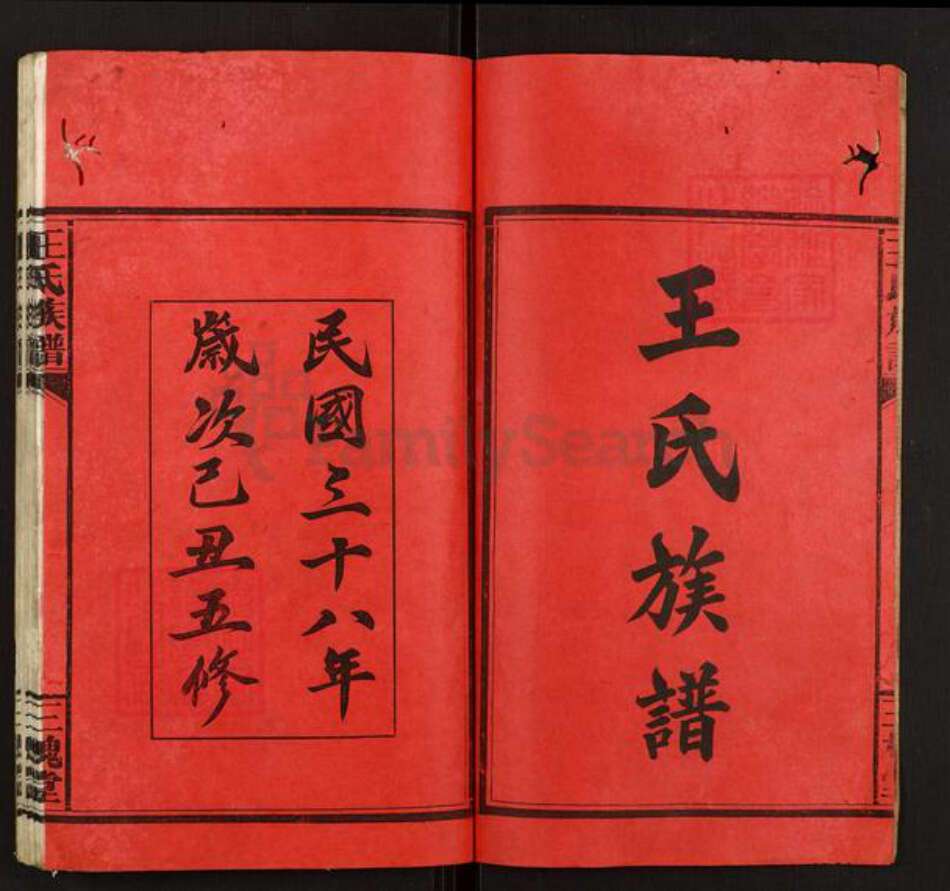 王氏族譜
民國三十八年
歲次己丑五修
王氏族譜
三槐堂
FamilySearch